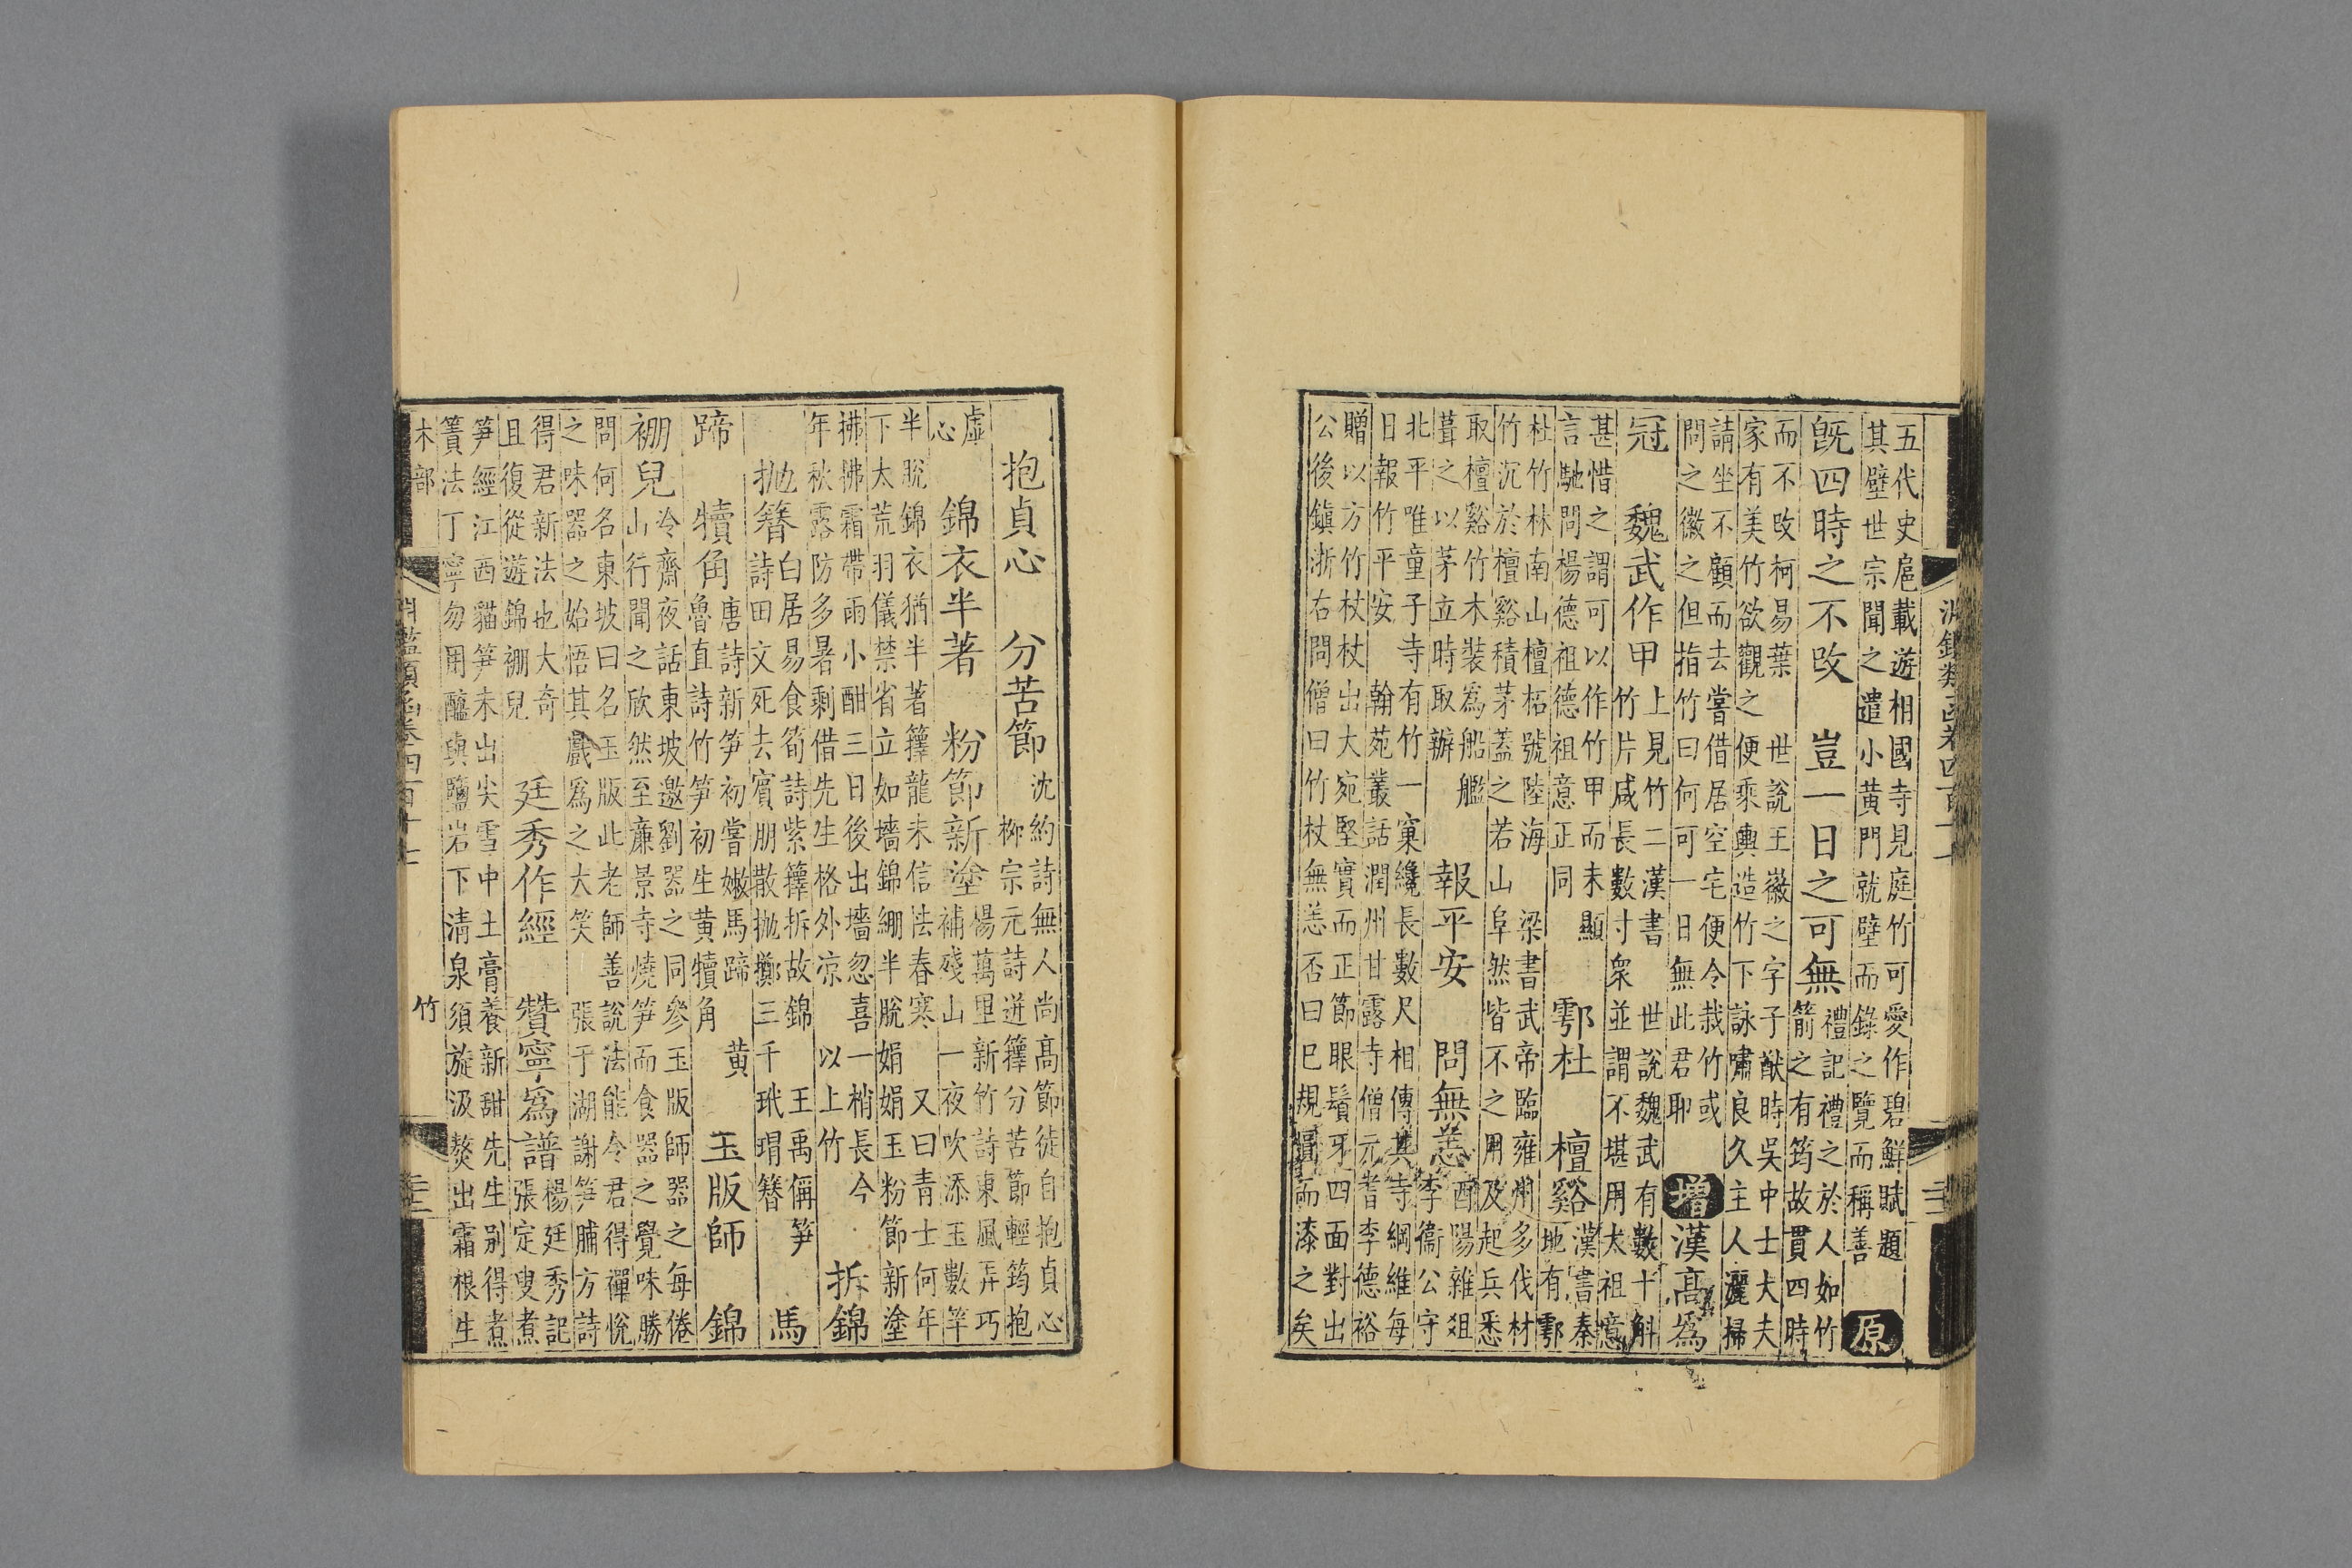 五代史扈載遊相國寺見庭竹可愛作碧鮮賦題
其壁世宗聞之遣小黃門就壁而錄之覽而稱善
原
旣四時之不改
豈一日之可無
禮記禮之於人如竹
箭之有筠故貫四時
而不改柯易葉
世說王徽之字子猷時吳中士大夫
家有美竹欲觀之便乘輿造竹下詠嘯良久主人灑掃
請坐不顧而去嘗借居空宅便令栽竹或
問之徽之但指竹曰何可一日無此君耶
增
漢高爲
冠
魏武作甲
上見竹二漢書
竹片咸長數寸衆並謂不堪用太祖意
世說魏武有數十斛
甚惜之謂可以作竹甲而未顯
言馳問楊德祖德祖意正同
鄠杜
檀谿
漢書秦
地有鄠
杜竹林南山檀柘號陸海
梁書武帝臨雍州多伐材
竹沉於檀谿積茅蓋之若山阜然皆不之用及起兵悉
取檀谿竹木裝爲船艦
葺之以茅立時取辦
報平安
問無恙
酉陽雜俎
李衞公守
北平唯童子寺有竹一窠纔長數尺相傳其寺綱維每
日報竹平安
翰苑叢話潤州甘露寺僧元耆李德裕
贈以方竹杖杖出大宛堅實而正節眼鬚牙四面對出
公後鎮浙右問僧曰竹杖無恙否曰已規圓而漆之矣
淵鑑類函卷四百十七
抱貞心
分苦節
沈約詩無人尚高節徒自抱貞心
柳宗元詩迸籜分苦節輕筠抱
虛心
錦衣半著
粉節新塗
楊萬里新竹詩東風弄巧
補殘山一夜吹添玉數竿
半脫錦衣猶半著籜龍未信法春寒
又曰青士何年
下太荒羽儀禁省立如墻錦綳半脫娟娟玉粉節新塗
拂拂霜帶雨小酣三日後出墻忽喜一梢長今
年秋露防多暑剩借先生格外凉
以上竹
拆錦
抛簪
白居易食筍詩紫籜拆故錦
詩田文死去賓朋散抛擲三千玳瑁簪
王禹偁筍
馬
蹄
犢角
唐詩新筍初嘗嫩馬蹄
魯直詩竹筍初生黃犢角
黃
玉版師
錦
綳兒
冷齋夜話東坡邀劉器之同參玉版師器之每倦
山行聞之欣然至㢘景寺燒筍而食器之覺味勝
問何名東坡曰名玉版此老師善說法能令君得禪悅
之味器之始悟其戲爲之大笑
張于湖謝筍脯方詩
得君新法也大奇
且復從遊錦綳兒
廷秀作經
贊寧爲譜
楊廷秀記
張定叟煮
筍經江西貓筍未出尖雪中土膏養新甜先生別得煮
簀法丁寧勿用醯與鹽岩下清泉須旋汲熬出霜根生
木部
竹